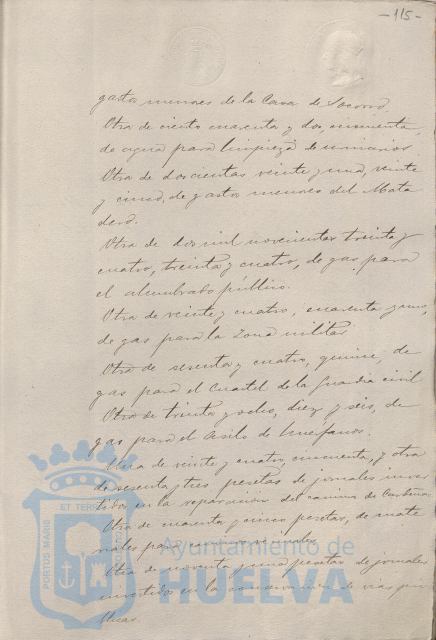 - 115 -
gastos menores de la Casa de Socorro
Otra de ciento cuarenta y dos, cincuenta,
de agua para limpieza de urinarios
Otra de doscientas veinte y una, veinte
y cinco, de gastos menores del Mata
dero.
Otra de dos mil novecientas treinta y
cuatro, treinta y cuatro, de gas para
el alumbrado público.
Otra de veinte y cuatro, cuarenta y uno,
de gas para la Zona militar
Otra de sesenta y cuatro, quince, de
gas para el Cuartel de la Guardia civil
Otra de treinta y ocho, diez y seis, de
gas para el Asilo de huérfanos.
Otra de veinte y cuatro, cincuenta, y otra
de sesenta y tres pesetas de jornales inver
tidos en la reparación del camino de
Otra de cuarenta y cinco pesetas, de mate
riales para caminos vecinales
Otra de noventa y una pesetas de jornales
invertidos en la conservación de vias pú
blicas.
PORTUS MARIS ET TERRAE CUSTODIA
Ayuntamiento de
HUELVA